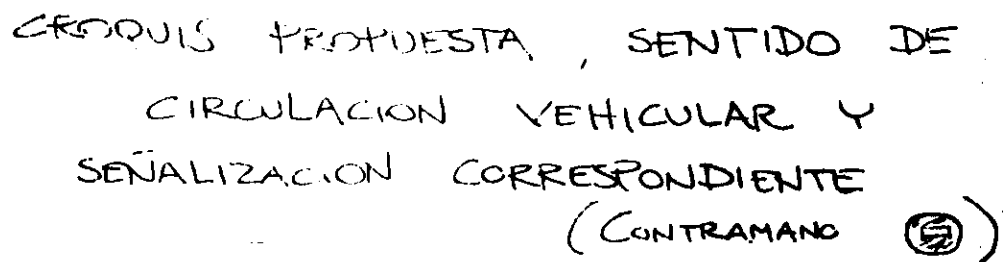 CROQUIS PROPUESTA, SENTIDO DE
CIRCULACION VEHICULAR Y
SEÑALIZACION CORRESPONDIENTE
(CONTRAMANO )